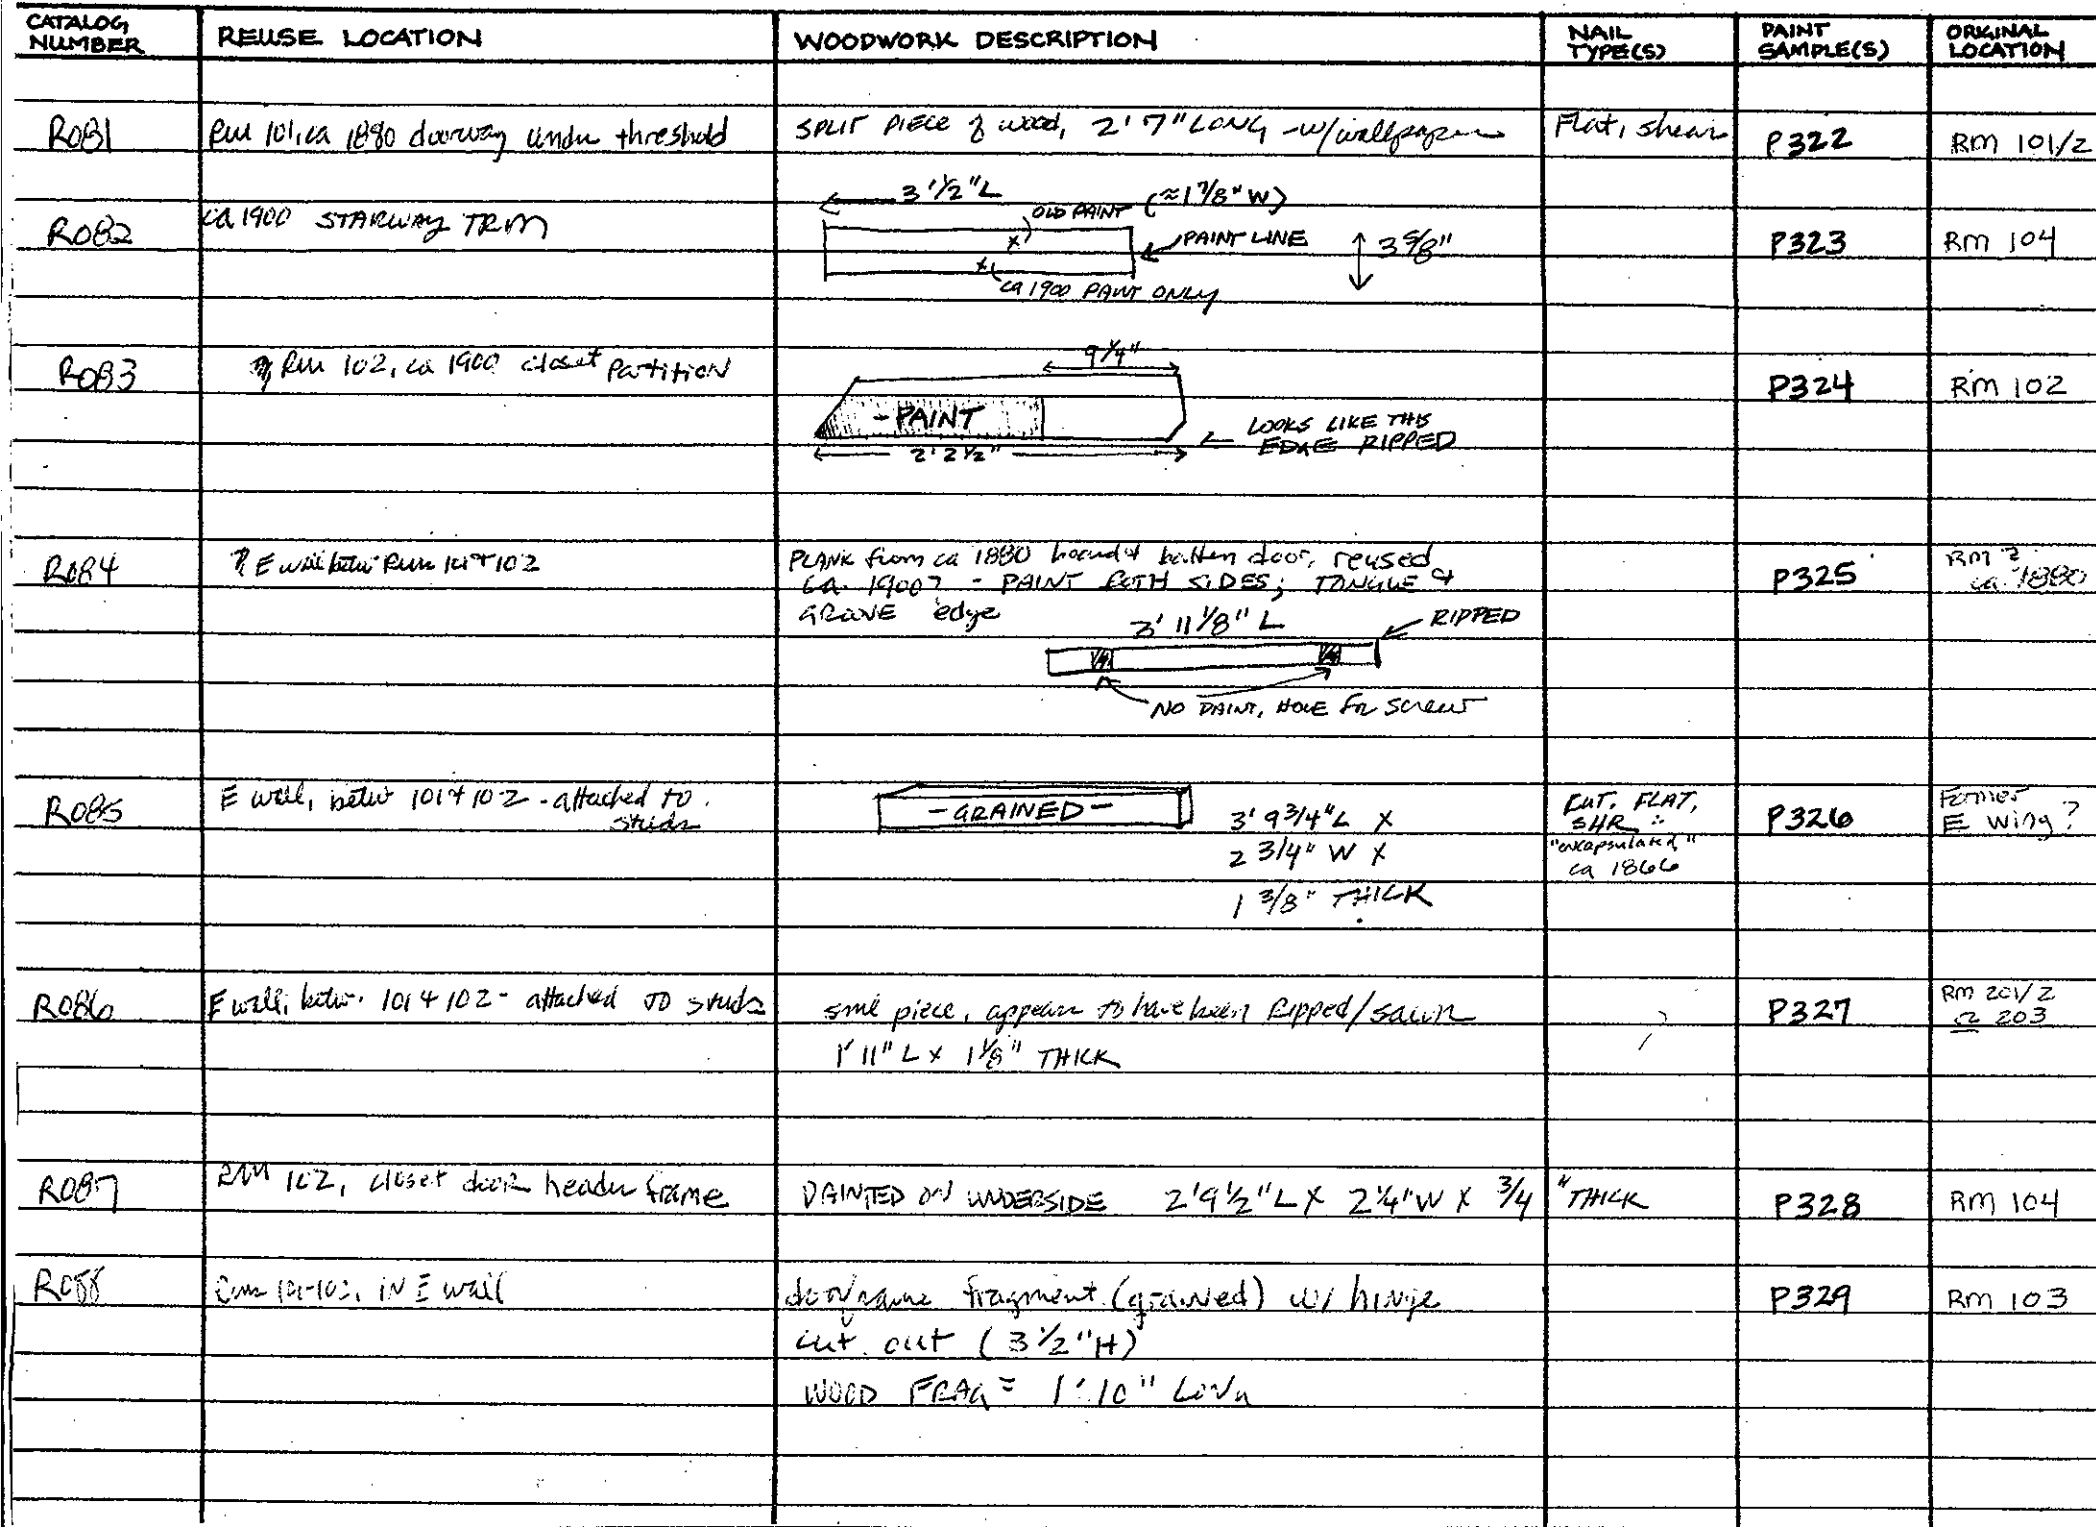 CATALOG NUMBER REUSE LOCATION WOODWORK DESCRIPTION NAIL TYPE(S) PAINT SAMPLE(S) ORIGINAL LOCATION
R081 Rm 101, ca 1880 doorway under threshold SPLIT PIECE of wood, 2'7" LONG -w/wallpaper Flat, shear P322 RM 101/2
R082 ca 1900 STARWAY TRIM P323 RM 104
3'1/2"L
OLD PAINT (≈1 7/8" W)
PAINT LINE 3 5/8"
ca 1900 PAINT ONLY
R083 Rm 102, ca 1900 closet partition P324 RM 102
9 1/4"
-PAINT
LOOKS LIKE THIS
EDGE RIPPED
2' 2 1/2"
R084 ? E wall betw Rms 101+102 P325 RM ? ca. 1880
PLANK from ca 1880 board & batten door, reused
ca. 1900? - PAINT BOTH SIDES; TONGUE &
GROVE edge
3' 11 1/8" L RIPPED
NO PAINT, HOLE for screw
R085 E wall, betw 101+102 - attached to studs P326 Former E wing?
-GRAINED-
3' 9 3/4"L X
2 3/4" W X
1 3/8" THICK
CUT, FLAT,
SHR
"encapsulated"
ca 1866
R086 E wall, betw. 101 & 102 - attached TO studs P327 RM 201/2 or 203
sml piece, appears to have been Ripped/sawn
1' 11" L x 1 1/8" THICK
R087 RM 102, closet door header frame PAINTED ON UNDERSIDE 2'9 1/2"L X 2 1/4"W X 3/4 "THICK P328 RM 104
R088 Rms 101-102, IN E wall P329 RM 103
doorframe fragment (grained) w/ hinge
cut out (3 1/2"H)
WOOD FRAG = 1' 10" LONG